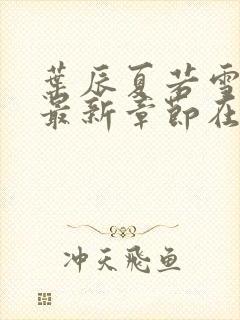 葉辰夏若雪
最新章節在
冲天飛鱼